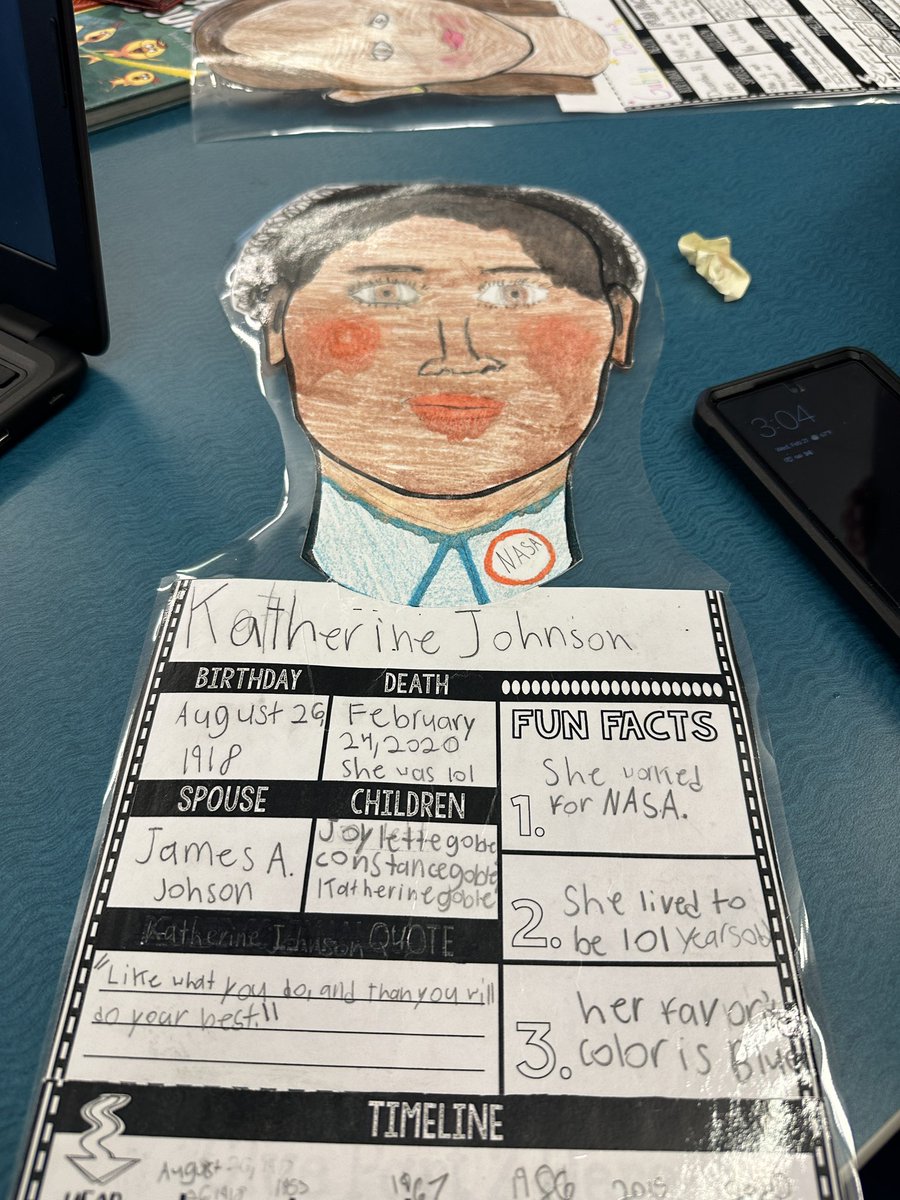 NASA
Kattherine Johnson
BIRTHDAY
August 26,
1918
DEATH
February
24, 2020
She was 101
SPOUSE
James A.
Johson
CHILDREN
Joylettegoble
constancegoble
Katherinegoble
Katherine Johnson QUOTE
"Like what you do, and than you will
do your best."
FUN FACTS
1. She worked
for NASA.
2. She lived to
be 101 years old
3. her favorite
color is Blue
TIMELINE
YEAR
August
1967
1986
2015
3:04